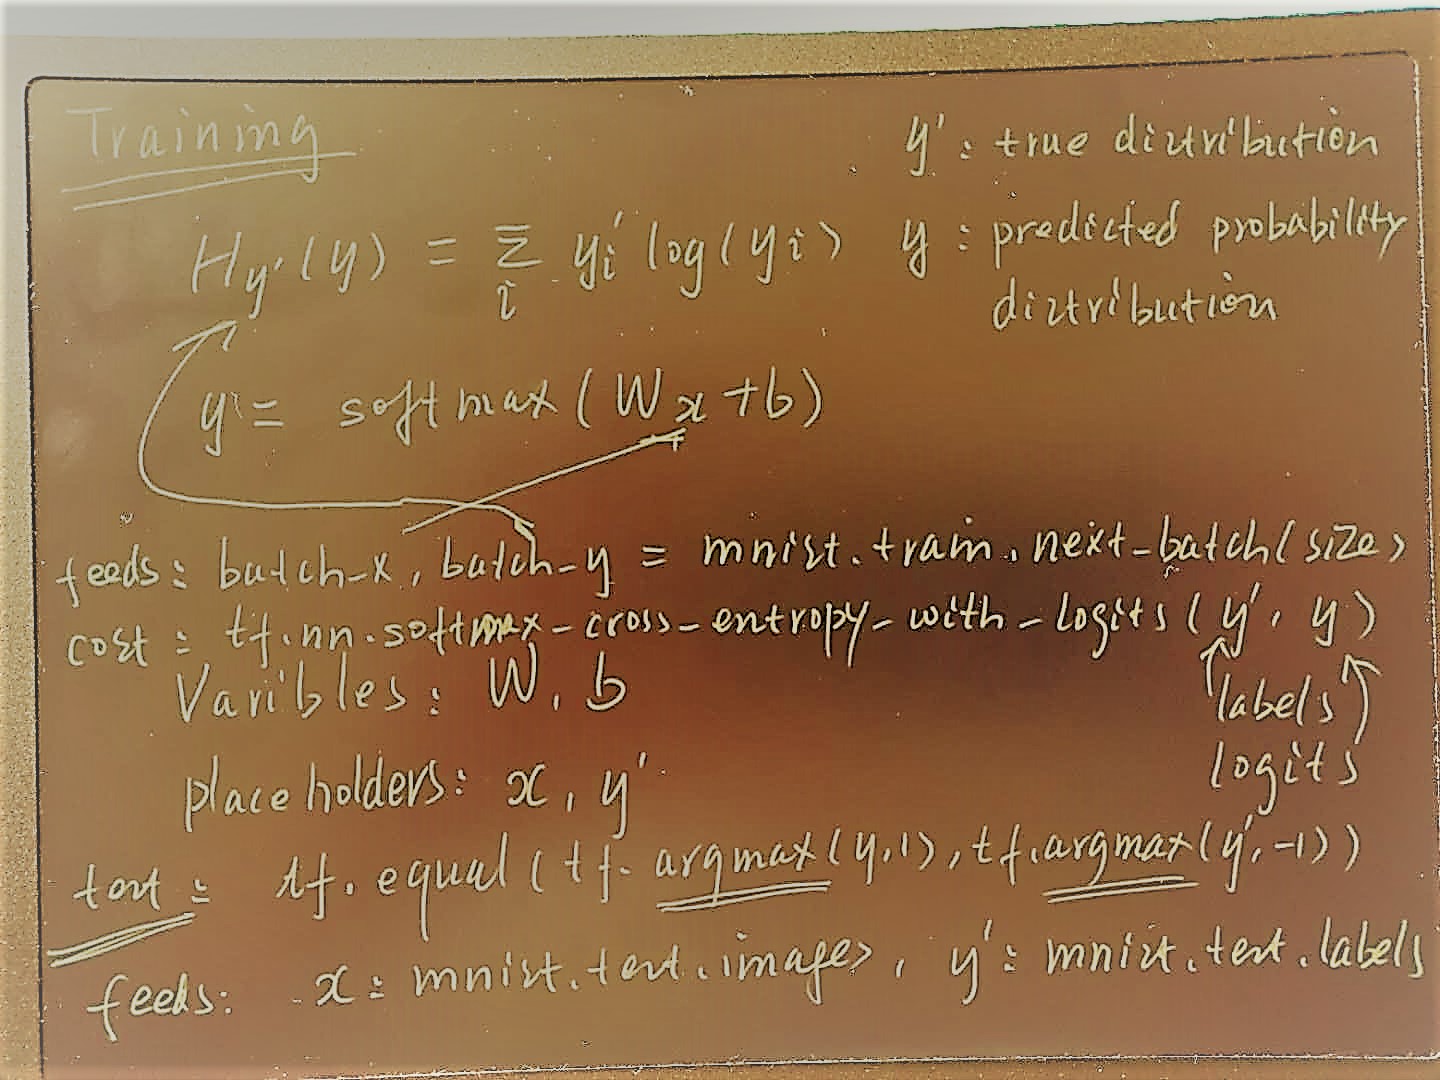 Training
y' : true distribution
H_y'(y) = Σ_i y_i' log(y_i)
y : predicted probability
distribution
y = softmax(Wx+b)
feeds: batch_x, batch_y = mnist.train.next_batch(size)
cost : tf.nn.softmax_cross_entropy_with_logits(y', y)
Varibles: W, b
labels
logits
placeholders: x, y'
test: tf.equal(tf.argmax(y,1), tf.argmax(y',-1))
feeds: x: mnist.test.images, y': mnist.test.labels